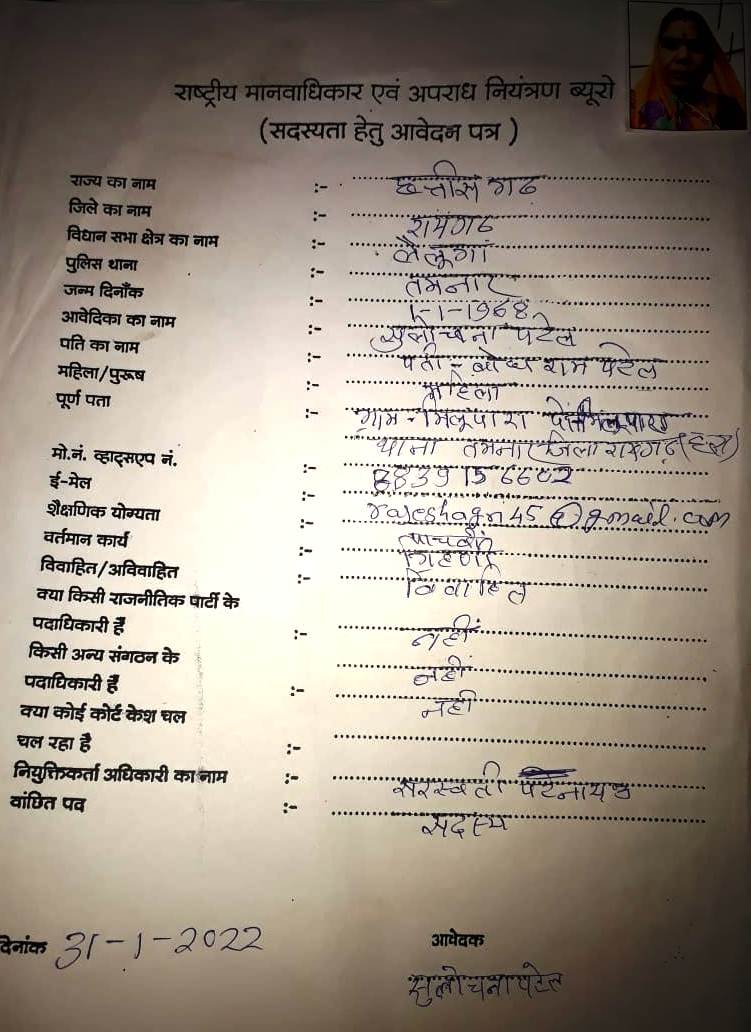 राष्ट्रीय मानवाधिकार एवं अपराध नियंत्रण ब्यूरो
(सदस्यता हेतु आवेदन पत्र )
राज्य का नाम :- छत्तीसगढ
जिले का नाम :- रायगढ
विधान सभा क्षेत्र का नाम :- लैलूंगा
पुलिस थाना :- तमनार
जन्म दिनाँक :- 1-1-1968
आवेदिका का नाम :- सुलोचना पटेल
पति का नाम :- पती - बोध राम पटेल
महिला/पुरूष :- महिला
पूर्ण पता :- ग्राम - मिलूपारा पो मिलूपारा
थाना तमनार जिला रायगढ़ (छ.ग)
मो.नं. व्हाट्सएप नं. :- 8839156602
ई-मेल :- @gmail.com
शैक्षणिक योग्यता :- पाचवीं
वर्तमान कार्य :-
विवाहित/अविवाहित :- विवाहित
क्या किसी राजनीतिक पार्टी के
पदाधिकारी हैं :- नहीं
किसी अन्य संगठन के
पदाधिकारी हैं :- नहीं
क्या कोई कोर्ट केश चल नही
चल रहा है :-
नियुक्तिकर्ता अधिकारी का नाम :- सरस्वती
वांछित पद :- सदस्य
दिनांक 31-1-2022
आवेदक
सुलोचना पटेल